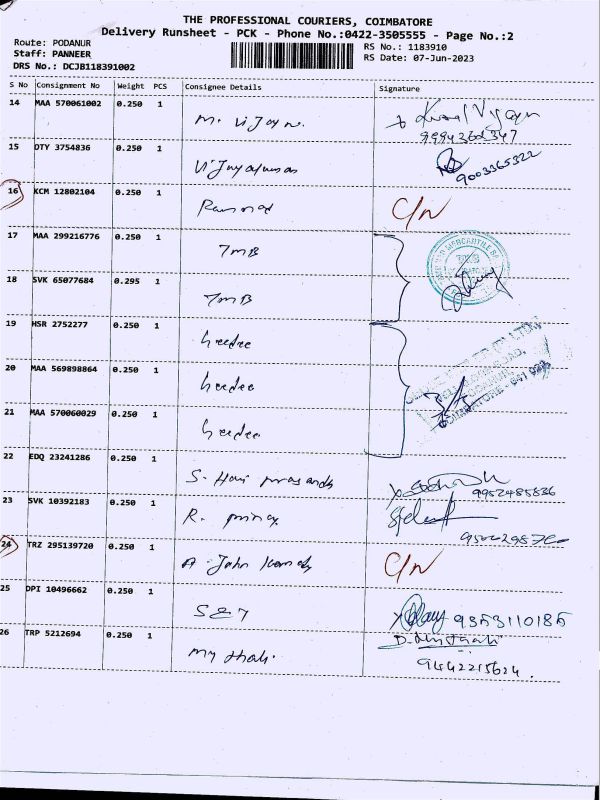 THE PROFESSIONAL COURIERS, COIMBATORE
Delivery Runsheet - PCK - Phone No.:0422-3505555 - Page No.:2
Route: PODANUR
RS No.: 1183910
Staff: PANNEER
RS Date: 07-Jun-2023
DRS No.: DCJB118391002
S No Consignment No Weight PCS Consignee Details Signature
14 MAA 570061002 0.250 1
9994362347
15 DTY 3754836 0.250 1 Vijayakumar
9003365322
16 KCM 12802104 0.250 1 C/N
17 MAA 299216776 0.250 1 TMB
18 SVK 65077684 0.295 1 TMB
19 HSR 2752277 0.250 1
20 MAA 569898864 0.250 1
21 MAA 570060029 0.250 1
COIMBATORE - 641 023
22 EDQ 23241286 0.250 1 S. Hari prasandh
9952485836
23 SVK 10392183 0.250 1
24 TRZ 295139720 0.250 1 A. John Kennedy C/N
25 DPI 10496662 0.250 1 S&T
9353110185
26 TRP 5212694 0.250 1
9442215624.